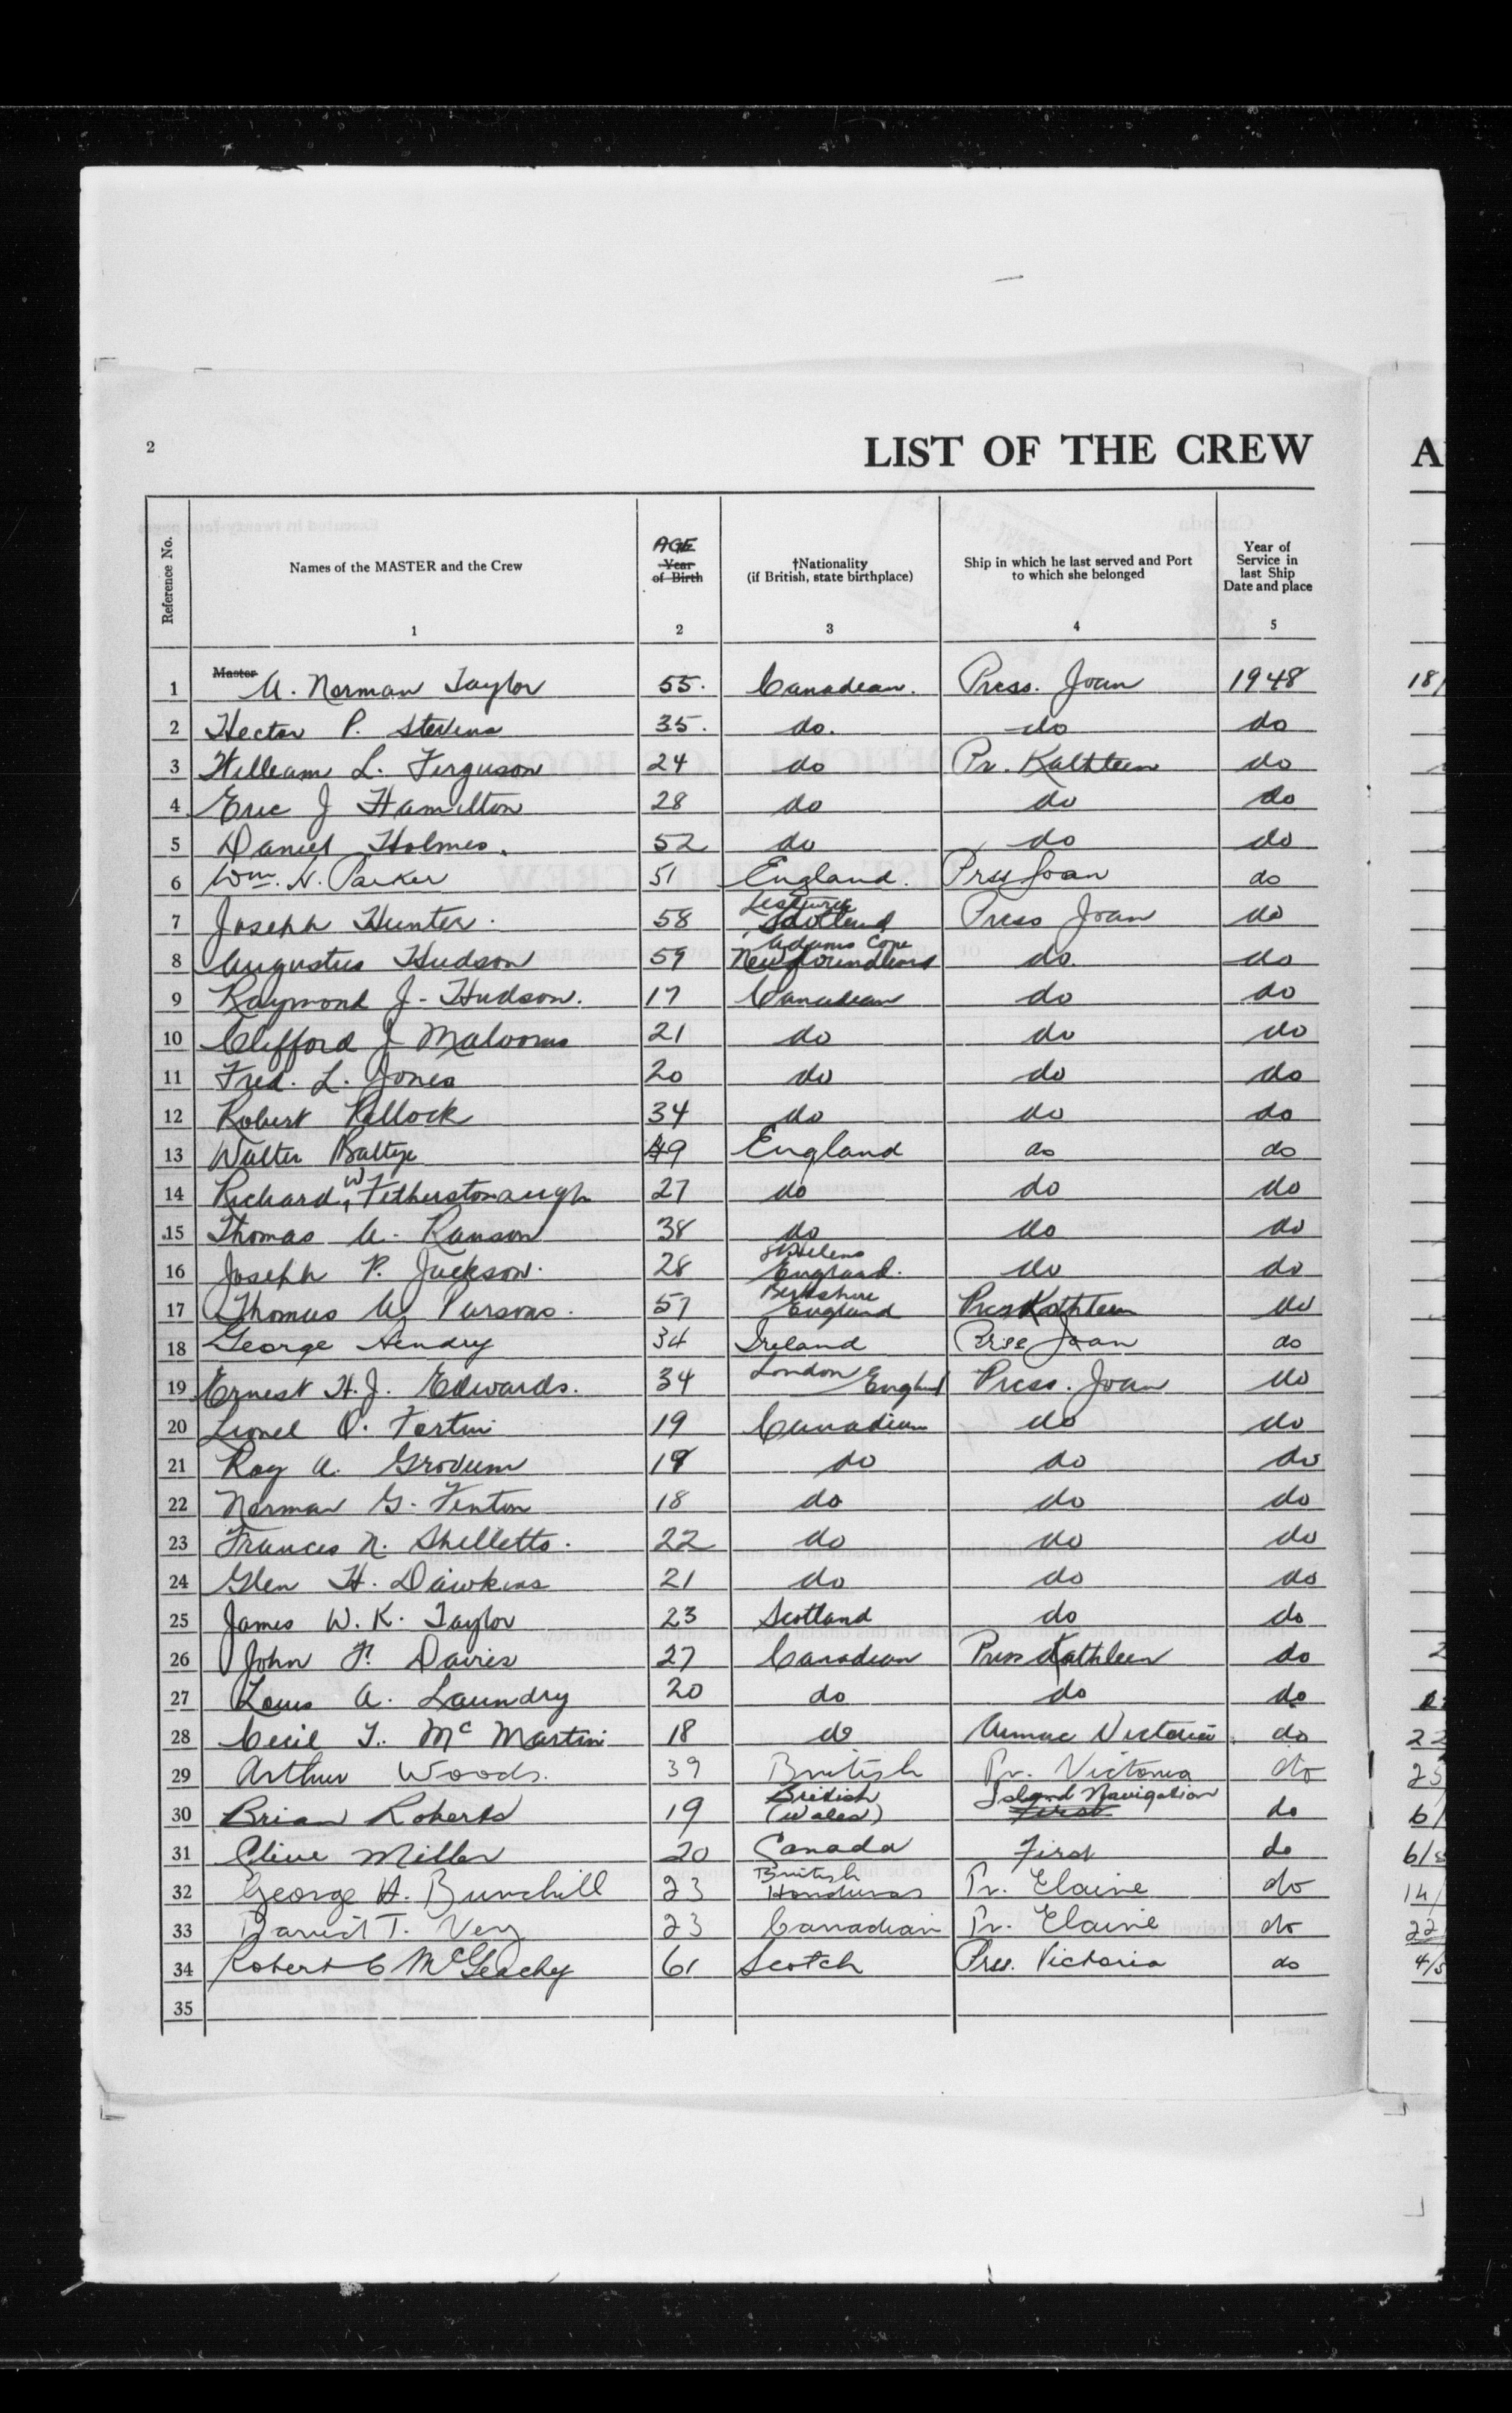 2
LIST OF THE CREW
A
Reference No.
Names of the MASTER and the Crew
1
AGE
Year
of Birth
2
†Nationality
(if British, state birthplace)
3
Ship in which he last served and Port
to which she belonged
4
Year of
Service in
last Ship
Date and place
5
1 Master A. Norman Taylor 55. Canadian. Press. Joan 1948 18/
2 Hector P. Stevens 35. do. do do
3 William L. Ferguson 24 do Pr. Kathleen do
4 Eric J Hamilton 28 do do do
5 Daniel Holmes. 52 do do do
6 Wm. H. Parker 51 England. Prss Joan do
7 Joseph Hunter. 58 Scotland Press Joan do
8 Augustus Hudson 59 Adams Cope Newfoundland do. do
9 Raymond J. Hudson. 17 Canadian do do
10 Clifford J 21 do do do
11 Fred. L. Jones 20 do do do
12 Robert Kellock 34 do do do
13 Walter 49 England do do
14 Richard W Fetherstonaugh 27 do do do
15 Thomas A. Ranson 38 do do do
16 Joseph P. Jackson. 28 St Helens England. do do
17 Thomas W Parsons. 57 Berkshire England Press Kathleen do
18 George Hendry 34 Ireland Prss Joan do
19 Ernest H.J. Edwards. 34 London England Press. Joan do
20 Lionel O. Fortin 19 Canadian do do
21 Roy A. Grovum 19 do do do
22 Norman G. Fenton 18 do do do
23 Frances N. Shelletto. 22 do do do
24 Glen H. Dawkins 21 do do do
25 James W. K. Taylor 23 Scotland do do
26 John F. Davies 27 Canadian Press Kathleen do 2
27 Louis A. Laundry 20 do do do
28 Cecil T. McMartin 18 do Victoria do 22
29 Arthur Woods. 39 British Pr. Victoria do 25
30 Brian Roberts 19 British (Wales) Island Navigation First do 6/
31 Clive Miller 20 Canada First do 6/5
32 George H. Burchill 23 British Honduras Pr. Elaine do 14/
33 David T. Vey 23 Canadian Pr. Elaine do 22
34 Robert C McGeachy 61 Scotch Prss. Victoria do 4/5
35